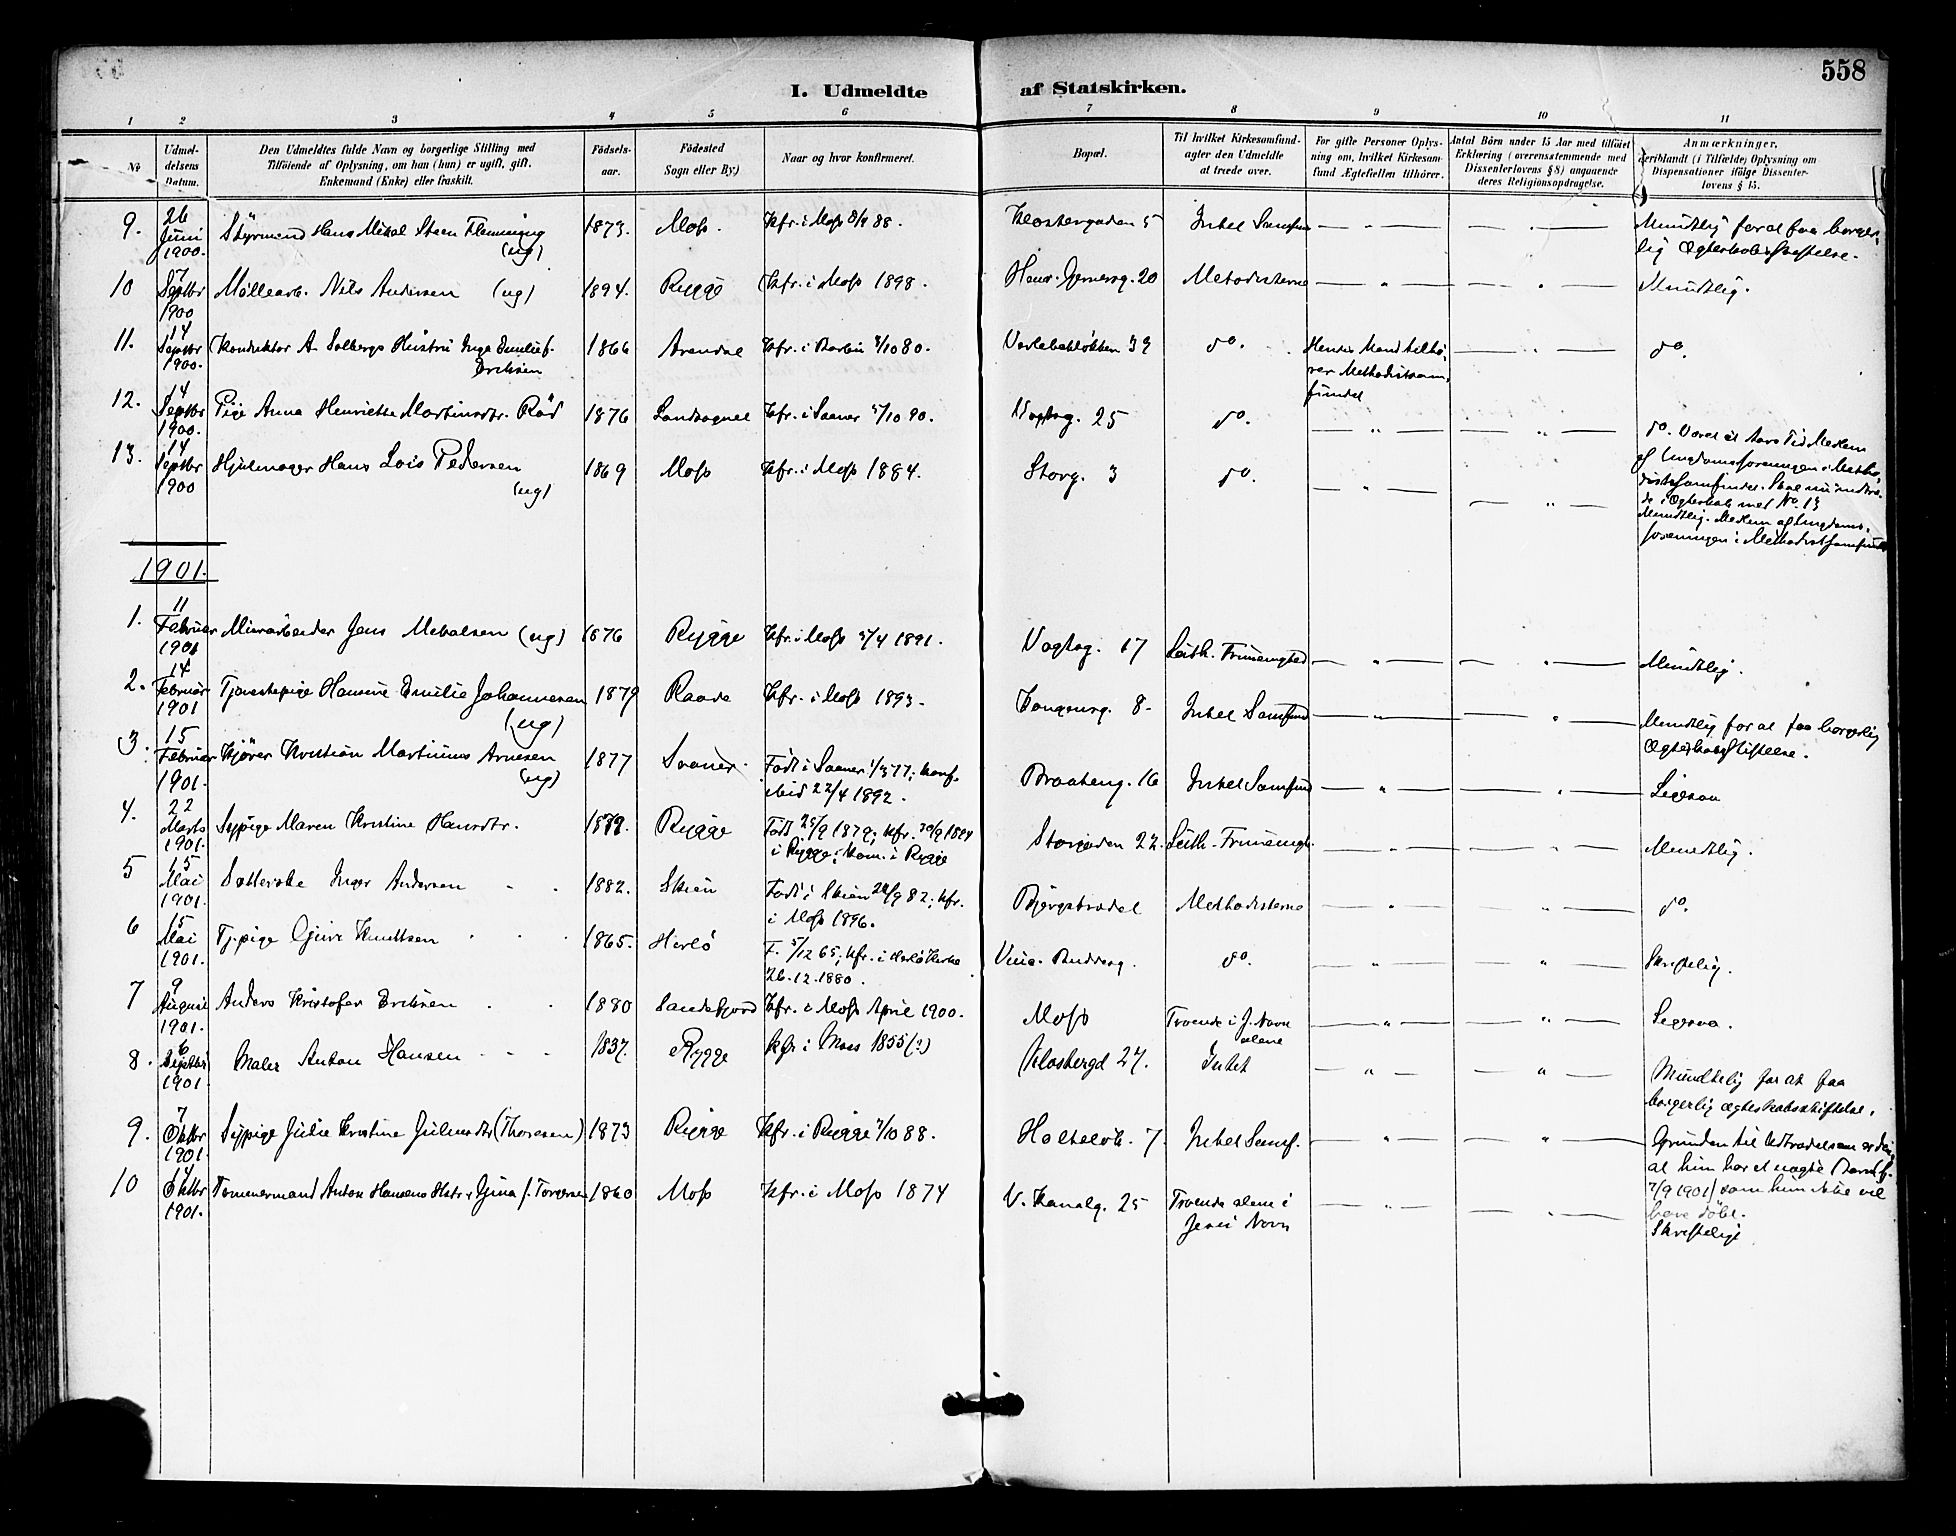 558
I. Udmeldte af Statskirken.
1 2 3 4 5 6 7 8 9 10 11
No
Udmeldelsens Datum.
Den Udmeldtes fulde Navn og borgerlige Stilling med
Tilföiende af Oplysning, om han (hun) er ugift, gift,
Enkemand (Enke) eller fraskilt.
Födselsaar.
Födested
Sogn eller By)
Naar og hvor konfirmeret.
Bopæl.
Til hvilket Kirkesamfund
agter den Udmeldte
at træde over.
For gifte Personer Oplys-
ning om, hvilket Kirkesam-
fund Ægtefællen tilhörer.
Antal Börn under 15 Aar med tilföiet
Erklæring (overensstemmende med
Dissenterlovens § 8) angaaende
deres Religionsopdragelse.
Anmærkninger,
deriblandt (i Tilfælde) Oplysning om
Dispensationer ifölge Dissenter-
lovens § 15.
9. 26 Juni 1900. Styrmand Hans Mikal Steen Flemming (ug) 1873. Moss. Kfr. i Moss 8/9 88. Klostergaden 5 Intet Samfund — " — — " — Mundtlig for at faa borger-
lig Ægteskabsstiftelse.
10 7 Septbr 1900 Møllearb. Nils Andersen (ug) 1894. Rygge Kfr. i Moss 1898. Henr. Gernersg. 20 Metodisterne — " — — " — Mundtlig.
11. 14 Septbr 1900. Konduktør A. Solbergs Hustru Inga Emilie f. Eriksen 1866 Arendal Kfr. i 3/10 80. 39 do. Hendes Mand tilhö-
rer Methodistsam-
fundet — " — do.
12. 14 Septbr 1900. Pige Anna Henriette Martinsdtr. Röd 1876 Landsognet Kfr. i Saaner 5/10 90. Vogtsg. 25 do. — " — — " — do. Været et Aars Tid Medlem
af Ungdomsforeningen i Metho-
distsamfundet. Skal nu indtræ-
de i Ægteskab med No. 13
13. 14 Septbr 1900 Hjulmager Hans Lois Pedersen (ug) 1869 Moss Kfr. i Moss 1884. Storg. 3 do. — " — — " — Mundtlig. Medlem af Ungdoms-
foreningen i Methodistsamfundet
1901.
1. 11 Februar 1901 Murarbeider Jens Mikalsen (ug) 1876 Rygge Kfr. i Moss 5/4 1891. Vogtsg. 17 Luth. Frimenighed — " — — " — Mundtlig.
2. 14 Februar 1901 Tjenestepige Hansine Emilie Johannesen (ug) 1879 Raade Kfr. i Moss 1893. Kongensg. 8. Intet Samfund — " — — " — Mundtlig for at faa borgerlig
Ægteskabsstiftelse.
3. 15 Februar 1901. Kjører Kristian Martinius Arnesen (ug) 1877 Saaner. Født i Saaner 1/3 77; konf.
ibid 22/4 1892. Braateng. 16 Intet Samfund — " — — " — Ligesaa
4. 22 Marts 1901. Sypige Maren Kristine Hansdtr. 1879. Rygge Født 25/9 1879; kfr. 30/9 1894
i Rygge; kom. i Rygge Storgaden 22. Luth. Frimenigh. — " — — " — Mundtlig.
5 15 Mai 1901. Inger Andersen 1882. Skien Født i Skien 24/9 82; kfr.
i Moss 1896. Bjergstrødet Methodisterne — " — — " — do.
6 15 Mai 1901. Tj.pige Gjuri Knudtsen 1865. Herlö F. 5/12 65; kfr. i Herlö Kirke
26.12.1880. do. — " — — " — Skriftlig.
7 9 August 1901. Anders Kristofer Eriksen 1880 Sandefjord Kfr. i Moss April 1900. Moss Troende i J. Navn
alene — " — — " — Ligesaa.
8. 6 Septbr 1901 Maler Anton Hansen 1837. Rygge kfr i Moss 1855 (?) Klostergd 27. Intet — " — — " — Mundtlig for at faa
borgerlig ægteskabsstiftelse.
9. 7 Oktbr 1901 Sypige Julie Kristine Julinsdtr (Thoresen) 1873 Rygge Kfr. i Rygge 7/10 88. Holtelök. 7. Intet Samf. — " — — " — Grunden til Udtrædelsen er den,
at hun har et uægte Barn (f.
7/9 1901) som hun ikke vil
have döbt.
10 14 Oktbr 1901. Tømmermand Anton Hansens Hstr. Gina f. Torgersen 1860 Moss Kfr. i Moss 1874 V. Kanalg. 25 Troende alene i
Jesu Navn — " — — " — Skriftligt